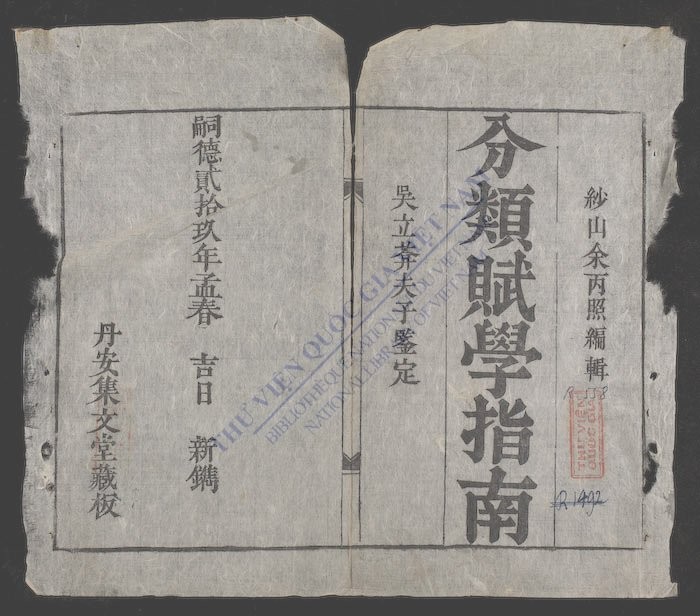 紗山余丙照編輯
分類賦學指南
吳立莽夫子鑒定
嗣德貳拾玖年孟春 吉日 新鐫
丹安集文堂藏板
THƯ VIỆN QUỐC GIA VIỆT NAM
BIBLIOTHÈQUE NATIONALE DU VIETNAM
NATIONAL LIBRARY OF VIETNAM
THƯ VIỆN
QUỐC GIA
R 1492